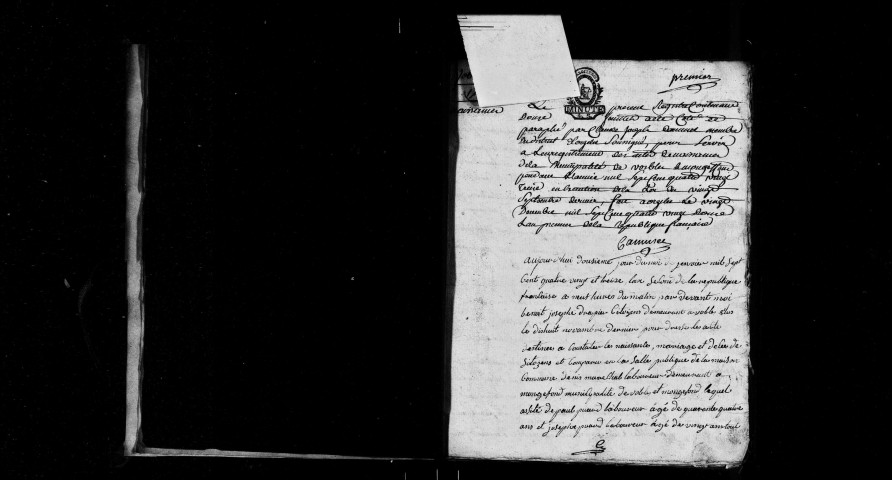 premier
MINUTE
Le present Registre Contenant
Douze feuillets a été Coté et
paraphé par Claude Joseph membre
du district d'orgelet soussigné, pour servir
a L'enregistrement des actes de naissances
de la Municipalité de vosbles
pendant L'année mil sept cent quatre vingt
treize en Execution de la Loi du vingt
Septembre dernier, fait a orgelet Le vingt
Decembre mil Sept Cent quatre vingt Douze
L'an premier de la republique française
aujourd'hui douzieme jour du moi de janvier mil sept
Cent quatre vingt et treize, l'an second de la republique
francaise a neuf heures du matin par devant moi
benoit joseph Citoyens demeurant a voble elus
le dishuit novambre dernier pour dresser les acte
destinees a Constater les naissantes, mariage et deces de
Sitozens et Comparu en la salle publique de la maison
Commune denis marechal laboureur demeurant a
mongefond municipalité de voble et mongefond lequel
asisté de paul laboureur agé de quarente quatre
ans et joseph laboureur agé de vingt